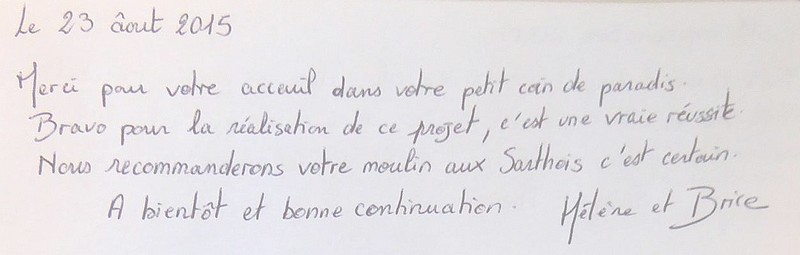 Le 23 âout 2015
Merci pour votre acceuil dans votre petit coin de paradis.
Bravo pour la réalisation de ce projet, c'est une vraie réussite.
Nous recommanderons votre moulin aux Sarthois c'est certain.
A bientôt et bonne continuation. Hélène et Brice